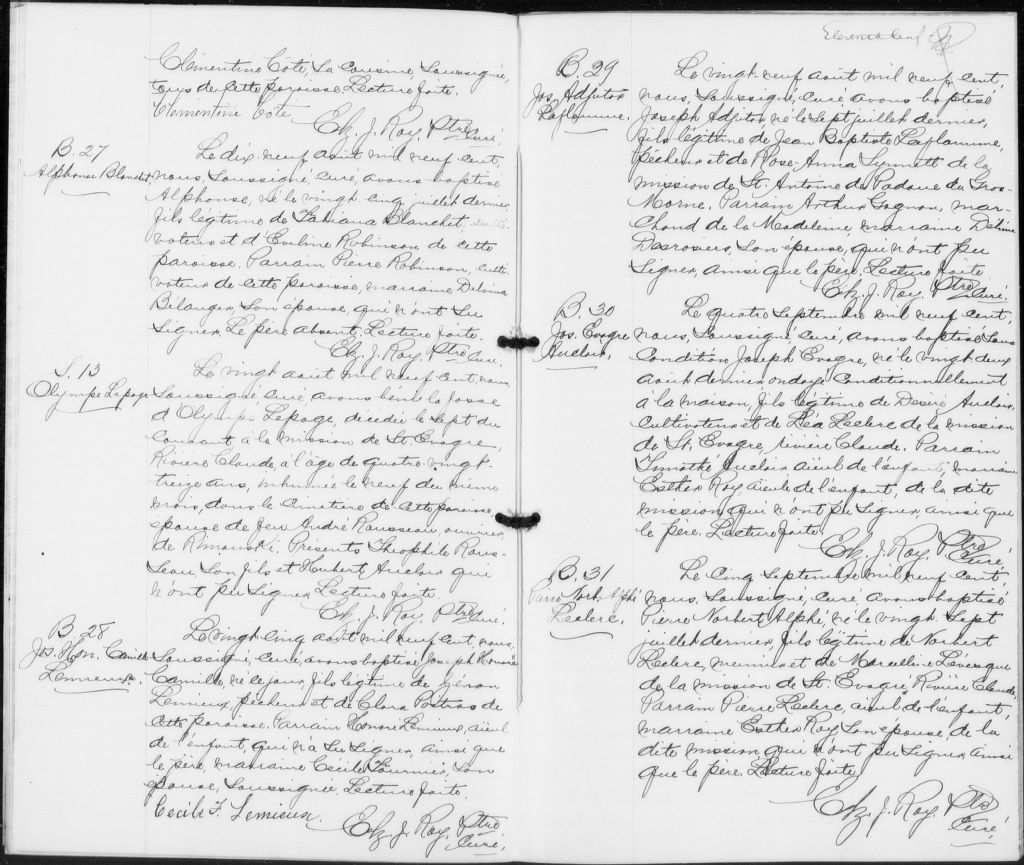 Clémentine Côté, sa cousine, soussignée,
tous de cette paroisse. Lecture faite.
Clementine Côte
Ez. J. Roy, Ptre
Curé.
B. 27
Alphonse Blanchet
Le dix-neuf août mil neuf cent,
nous, soussigné, curé, avons baptisé
Alphonse, né le vingt cinq juillet dernier,
fils légitime de Fabiana Blanchet, culti-
vateur et d'Eveline Robinson de cette
paroisse. Parrain Pierre Robinson, culti-
vateur de cette paroisse, marraine Delvina
Bélanger, son épouse, qui n'ont su
signer. Le père absent. Lecture faite.
Ez. J. Roy, Ptre
Curé.
S. 13
Olympe Lepage
Le vingt août mil neuf cent, nous,
soussigné, curé avons béni la fosse
d'Olympe Lepage, décédée le sept du
courant à la mission de St. Evagre,
Rivière Claude, à l'âge de quatre-vingt-
treize ans, inhumée le neuf du même
mois, dans le cimetière de cette paroisse,
épouse de feu André Rousseau, ouvrier,
de Rimouski. Présents Théophile Rous-
seau son fils et Hubert Auclair qui
n'ont pu signer. Lecture faite.
Ez. J. Roy, Ptre
Curé.
B. 28
Jos. Hon. Camille
Lemieux.
Le vingt cinq août mil neuf cent, nous,
soussigné, curé avons baptisé Joseph Honoré
Camille, né ce jour, fils légitime de
Lemieux, pêcheur et de Clara Poitras de
cette paroisse. Parrain Honoré Lemieux, aïeul
de l'enfant, qui n'a su signer, ainsi que
le père, marraine Cécile Fournier, son
épouse, soussignée. Lecture faite.
Cecile F. Lemieux.
Ez. J. Roy, Ptre
Curé.
Eleventh leaf
B. 29
Jos. Adjutor
Laflamme.
Le vingt-neuf août mil neuf cent,
nous, soussigné, curé avons baptisé
Joseph Adjutor né le sept juillet dernier,
fils légitime de Jean Baptiste Laflamme,
pêcheur et de Rose-Anna Synnett de la
mission de St. Antoine de Padoue du Gros-
Morne. Parrain Arthur Gagnon, mar-
chand de la Madeleine, marraine Délvina
Desrosiers, son épouse, qui n'ont pu
signer, ainsi que le père. Lecture faite
Ez. J. Roy, Ptre
Curé.
B. 30
Jos. Evagre
Auclair.
Le quatre septembre mil neuf cent,
nous, soussigné, curé, avons baptisé sous
condition Joseph Evagre, né le vingt deux
août dernier ondoyé conditionnellement
à la maison, fils légitime de Désiré Auclair,
cultivateur et de Léa Leclerc de la mission
de St. Evagre, rivière Claude. Parrain
Timothé Auclair aïeul de l'enfant, marraine
Esther Roy aïeule de l'enfant, de la dite
mission, qui n'ont pu signer, ainsi que
le père. Lecture faite.
Ez. J. Roy, Ptre
Curé.
B. 31
Pierre Norb. Alphé
Leclerc.
Le cinq septembre mil neuf cent,
nous, soussigné, curé, avons baptisé
Pierre Norbert Alphé, né le vingt sept
juillet dernier, fils légitime de Norbert
Leclerc, meunier et de Marcelline Lévesque
de la mission de St. Evagre Rivière Claude,
Parrain Pierre Leclerc, aïeul de l'enfant,
marraine Esther Roy son épouse, de la
dite mission, qui n'ont pu signer ainsi
que le père. Lecture faite.
Ez. J. Roy, Ptre
Curé.